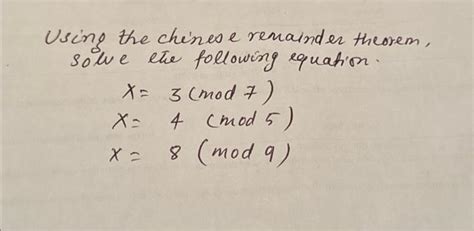 Using the chinese remainder theorem,
solve the following equation.
X = 3 (mod 7)
X = 4 (mod 5)
X = 8 (mod 9)